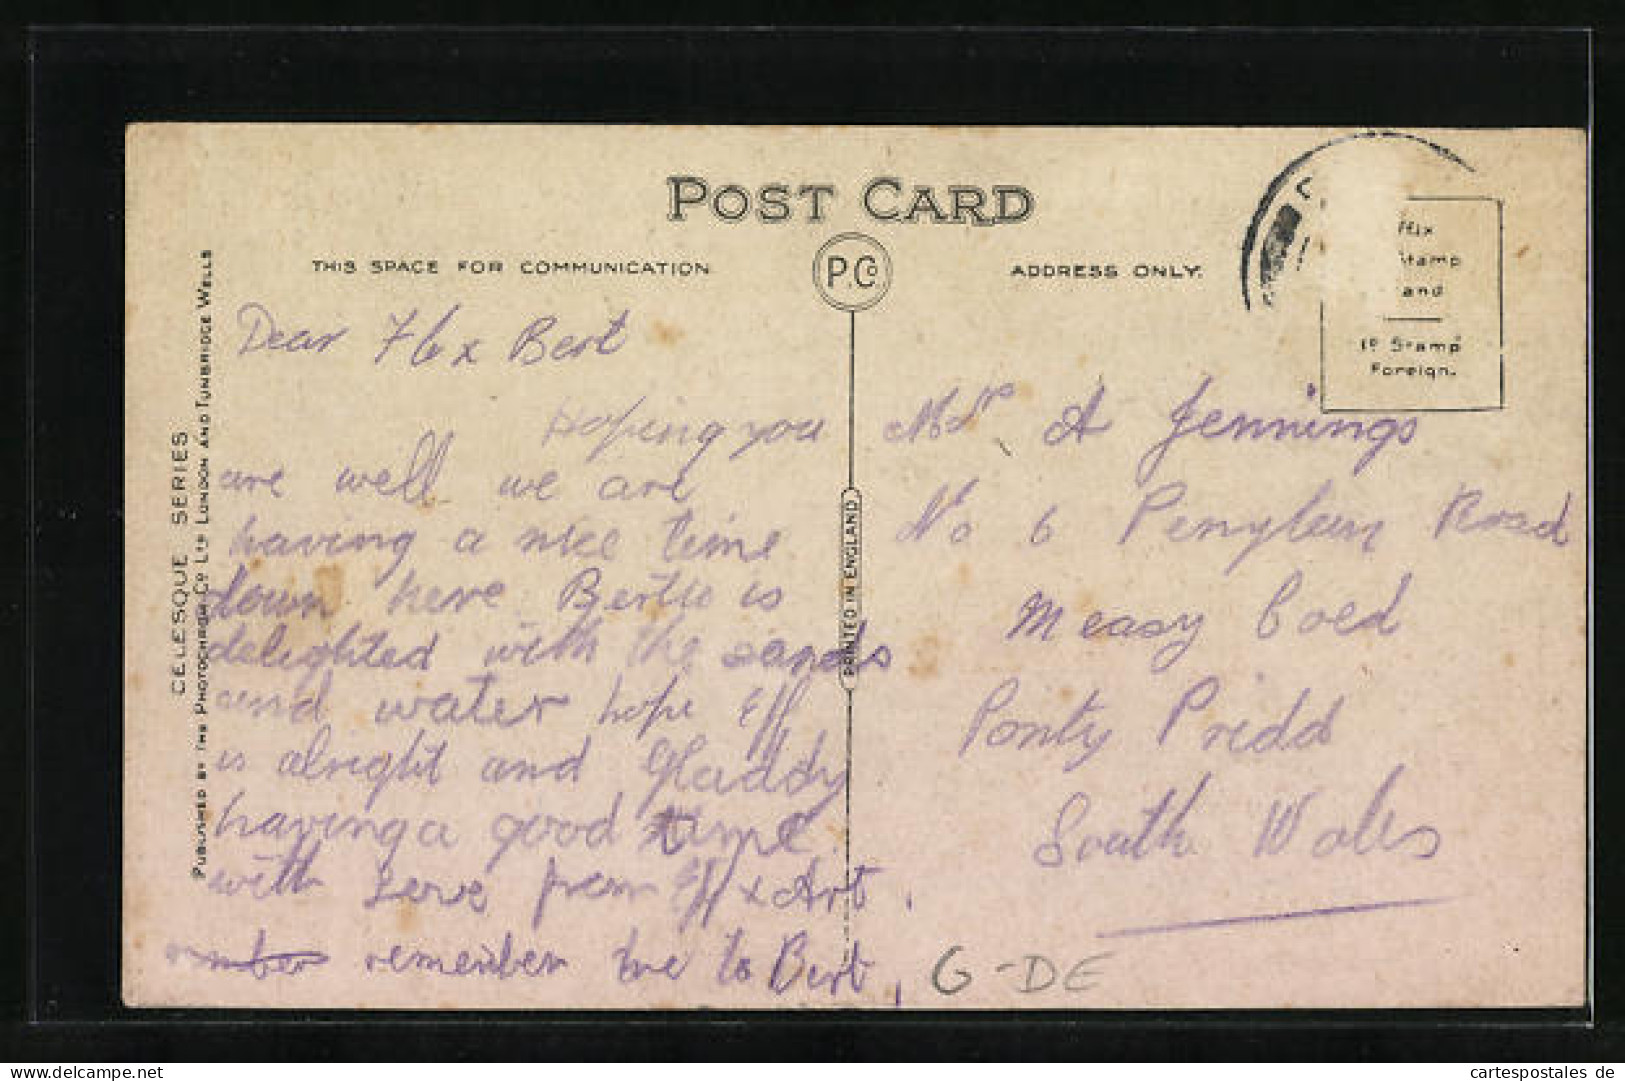 POST CARD
THIS SPACE FOR COMMUNICATION
P.Co
ADDRESS ONLY.
ffix
Stamp
and
1D Stamp
Foreign.
CELESQUE SERIES
PUBLISHED BY THE PHOTOCHROM CO LTD LONDON AND TUNBRIDGE WELLS
PRINTED IN ENGLAND
Dear Flo x Bert
Hoping you
are well we are
having a nice time
down here Bertie is
delighted with the sands
and water hope Eff
is alright and Gladdy
having a good time
with Love from Eff x Art.
remember me to Bert,
A Jennings
No 6 Penylan Road
Measy Coed
Ponty Pridd
South Wales
G-DE
cartespostales de
www.delcampe.net